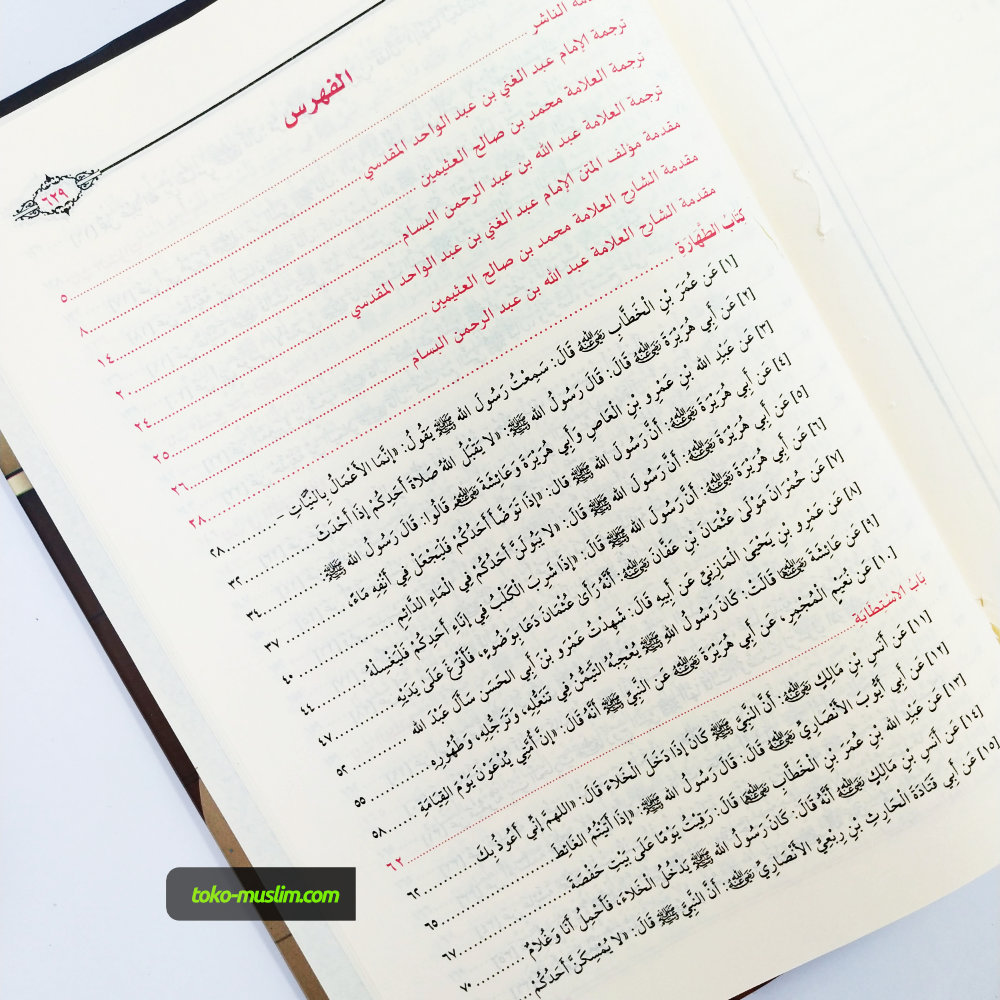 ٦٢٩
الفهرس
مة الناشر ... ٥
ترجمة الإمام عبد الغني بن عبد الواحد المقدسي ... ٨
ترجمة العلامة محمد بن صالح العثيمين ... ١٤
ترجمة العلامة عبد الله بن عبد الرحمن البسام ... ٢٠
مقدمة مؤلف المتن الإمام عبد الغني بن عبد الواحد المقدسي ... ٢٤
مقدمة الشارح العلامة محمد بن صالح العثيمين ... ٢٥
مقدمة الشارح العلامة عبد الله بن عبد الرحمن البسام ... ٢٦
كتَابُ الطَّهَارَةِ ... ٢٨
[١] عَن عُمَرَ بْنِ الْخَطَّابِ رَضِيَ اللهُ عَنْهُ قَالَ: سَمِعْتُ رَسُولَ الله ﷺ يَقُولُ: «إِنَّمَا الأَعْمَالُ بِالنِّيَّاتِ – ... ٢٨
[٢] عَن أَبِي هُرَيْرَةَ رَضِيَ اللهُ عَنْهُ قَالَ: قَالَ رَسُولُ الله ﷺ: «لا يَقْبَلُ اللهُ صَلاةَ أَحَدِكُمْ إِذَا أَحْدَثَ ... ٣٢
[٣] عَن عَبْدِ الله بْنِ عَمْرِو بْنِ الْعَاصِ وَأَبِي هُرَيْرَةَ وَعَائِشَةَ رَضِيَ اللهُ عَنْهُم قَالُوا: قَالَ رَسُولُ الله ﷺ: ... ٣٤
[٤] عَن أَبِي هُرَيْرَةَ رَضِيَ اللهُ عَنْهُ: أَنَّ رَسُولَ الله ﷺ قال: «إِذَا تَوَضَّأَ أَحَدُكُمْ فَلْيَجْعَلْ فِي أَنْفِهِ مَاءً، ... ٣٧
[٥] عَن أَبِي هُرَيْرَةَ رَضِيَ اللهُ عَنْهُ: أَنَّ رَسُولَ الله ﷺ قَالَ: «لا يَبُولَنَّ أَحَدُكُمْ فِي الْمَاءِ الدَّائِمِ ... ٤٠
[٦] عَن أَبِي هُرَيْرَةَ رَضِيَ اللهُ عَنْهُ: أَنَّ رَسُولَ الله ﷺ قَالَ: «إِذَا شَرِبَ الْكَلْبُ فِي إِنَاءِ أَحَدِكُمْ فَلْيَغْسِلْهُ ... ٤٤
[٧] عَن حُمْرَانَ مَوْلَى عُثْمَانَ بْنِ عَفَّانَ رَضِيَ اللهُ عَنْهُ: أَنَّهُ رَأَى عُثْمَانَ دَعَا بِوَضُوءٍ، فَأَفْرَغَ عَلَى يَدَيْهِ ... ٤٧
[٨] عَن عَمْرِو بْنِ يَحْيَى الْمَازِنِيِّ عَن أَبِيهِ قَالَ: شَهِدْتُ عَمْرَو بْنَ أَبِي الحَسَنِ سَأَلَ عَبْدَ الله ... ٥٢
[٩] عَن عَائِشَةَ رَضِيَ اللهُ عَنْهَا قَالَتْ: كَانَ رَسُولُ الله ﷺ يُعْجِبُهُ التَّيَمُّنُ فِي تَنَعُّلِهِ، وَتَرَجُّلِهِ، وَطُهُورِهِ ... ٥٥
[١٠] عَن نُعَيْمٍ الْمُجْمِرِ، عَن أَبِي هُرَيْرَةَ رَضِيَ اللهُ عَنْهُ عَن النَّبِيِّ ﷺ أَنَّهُ قَالَ: «إِنَّ أُمَّتِي يُدْعَوْنَ يَوْمَ الْقِيَامَةِ ... ٥٨
بَابُ الاسْتطَابَةِ ... ٦٢
[١١] عَن أَنَسِ بْنِ مَالِكٍ رَضِيَ اللهُ عَنْهُ: أَنَّ النَّبِيَّ ﷺ كَانَ إِذَا دَخَلَ الْخَلاءَ قَالَ: «اللهمَّ إِنِّي أَعُوذُ بِكَ ... ٦٢
[١٢] عَن أَبِي أَيُّوبَ الأَنْصَارِيِّ رَضِيَ اللهُ عَنْهُ قَالَ: قَالَ رَسُولُ الله ﷺ: «إِذَا أَتَيْتُمُ الغَائِطَ ... ٦٥
[١٣] عَن عَبْدِ الله بْنِ عُمَرَ بْنِ الْخَطَّابِ رَضِيَ اللهُ عَنْهُمَا قَالَ: رَقِيتُ يَوْمًا عَلَى بَيْتِ حَفْصَةَ ... ٦٧
[١٤] عَن أَنَسِ بْنِ مَالِكٍ رَضِيَ اللهُ عَنْهُ أَنَّهُ قَالَ: كَانَ رَسُولُ الله ﷺ يَدْخُلُ الْخَلاءَ، فَأَحْمِلُ أَنَا وَغُلامٌ ... ٧٠
[١٥] عَن أَبِي قَتَادَةَ الْحَارِثِ بْنِ رِبْعِيٍّ الأَنْصَارِيِّ رَضِيَ اللهُ عَنْهُ: أَنَّ النَّبِيَّ ﷺ قَالَ: «لا يُمْسِكَنَّ أَحَدُكُمْ ...
toko-muslim.com